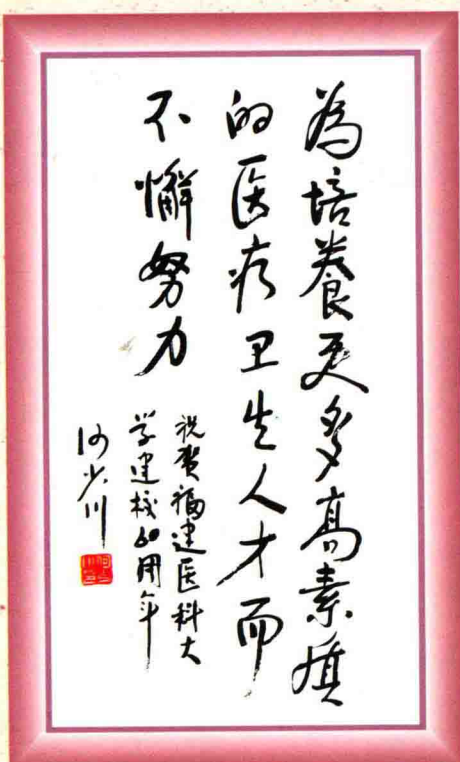 為培養更多高素质
的医疗卫生人才而
不懈努力
祝贺福建医科大
学建校60周年
何少川